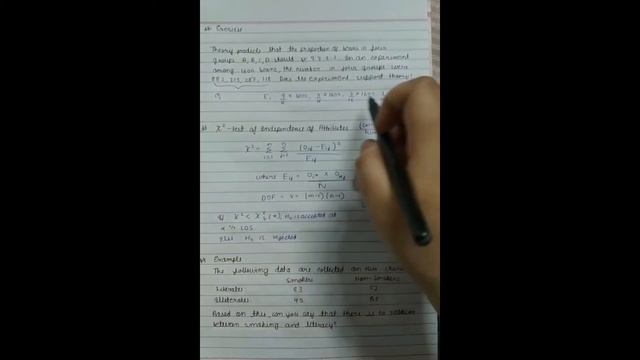 Exercise
Theory predicts that the proportion of beans in four
groups A, B, C, D should be 9:3:3:1. In an experiment
among 1600 beans, the number in four groups were
882, 313, 287, 118. Does the experiment support theory?
Oi Ei 9/16 × 1600, 3/16 × 1600, 3/16 × 1600,
χ²-test of Independence of Attributes
χ² = Σ Σ (Oij - Eij)² / Eij
i=1 j=1
where Eij = Oi* × O*j / N
DOF = v = (m-1)(n-1)
If χ² < χ²v(α), H0 is accepted at
α % LOS
else H0 is rejected
Example
The following data are collected on two
Smokers Non-Smokers
Literates 83 57
Illiterates 45 68
Based on this, can you say that there is no relation
between smoking and literacy?